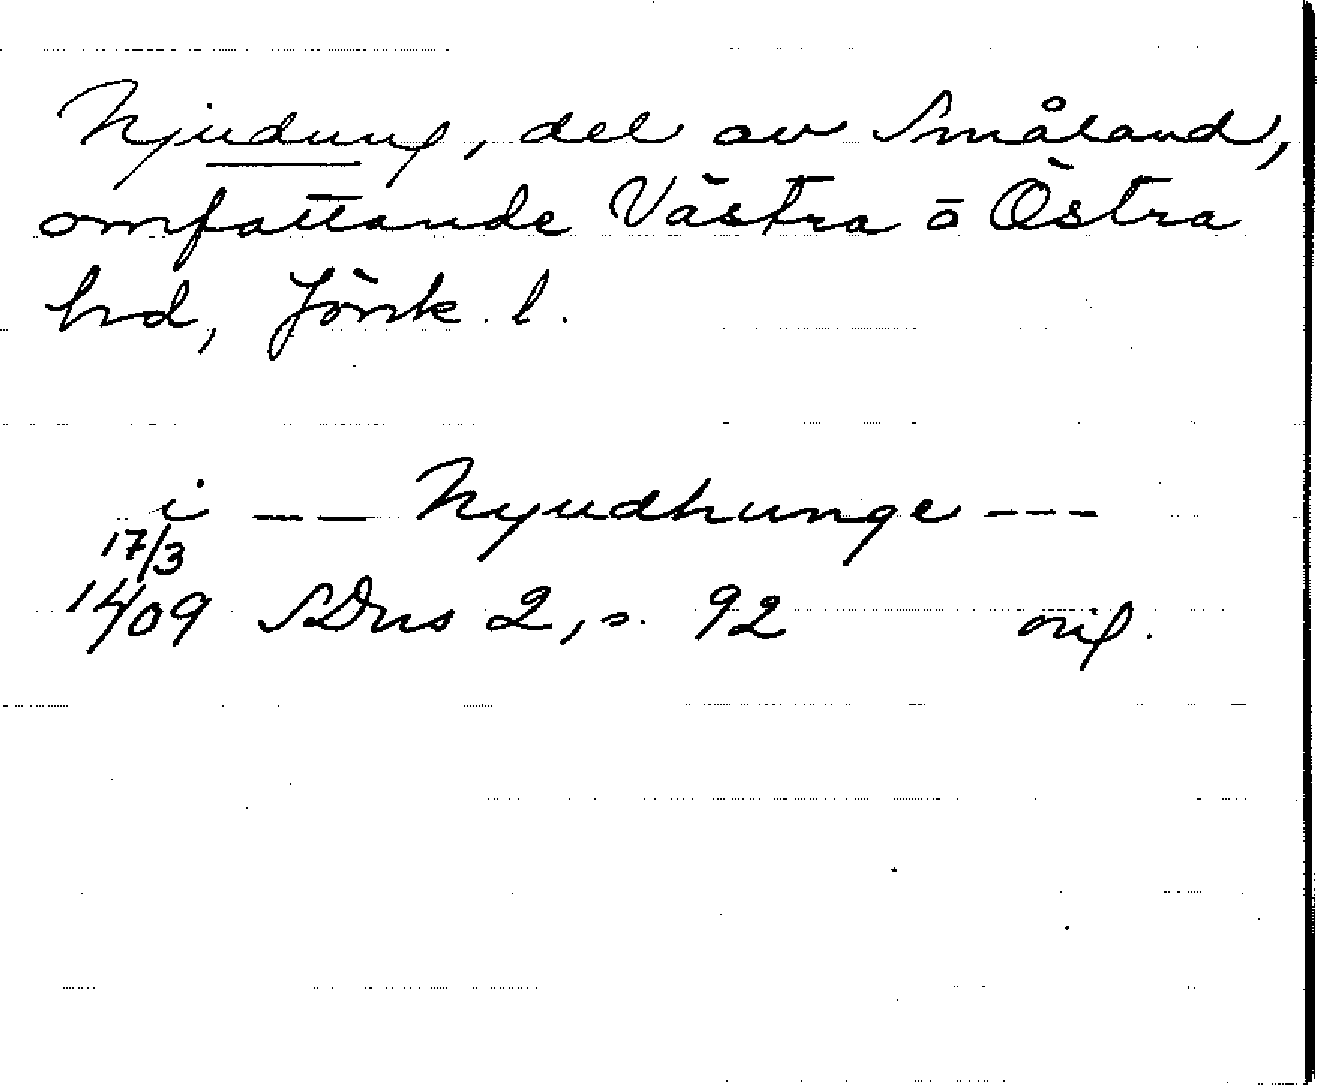 Njudung, del av Småland,
omfattande Västra o Östra
hd, Jönk. l.
i — — Nyudhunge - - -
17/3
14/09 SDns 2, s. 92 orig.